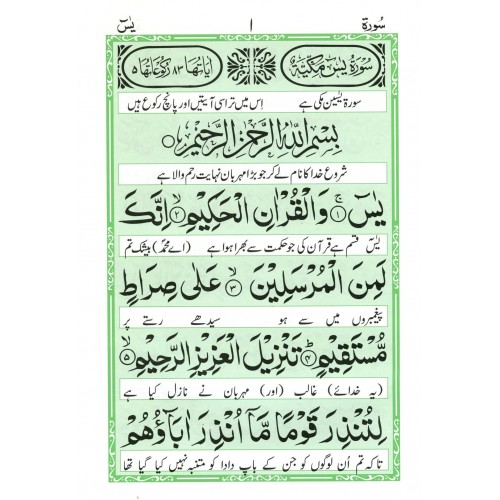 سُورة ١ يٰسٓ
سُوْرَةُ يٰسٓ مَكِّيَّةٌ اٰيَاتُهَا ٨٣ رُكُوْعَاتُهَا ٥
سورۃ یٰسین مکی ہے اِس میں تراسی آیتیں اور پانچ رکوع ہیں
بِسْمِ اللّٰهِ الرَّحْمٰنِ الرَّحِيْمِ
شروع خدا کا نام لے کر جو بڑا مہربان نہایت رحم والا ہے
يٰسٓ ۚ﴿١﴾ وَالْقُرْاٰنِ الْحَكِيْمِ ۙ﴿٢﴾ اِنَّكَ
یٰسٓ قسم ہے قرآن کی جو حکمت سے بھرا ہوا ہے (اے محمدؐ) بیشک تم
لَمِنَ الْمُرْسَلِيْنَ ۙ﴿٣﴾ عَلٰى صِرَاطٍ
پیغمبروں میں سے ہو سیدھے رستے پر
مُّسْتَقِيْمٍ ؕ﴿٤﴾ تَنْزِيْلَ الْعَزِيْزِ الرَّحِيْمِ ۙ﴿٥﴾
(یہ خدائے) غالب (اور) مہربان نے نازل کیا ہے
لِتُنْذِرَ قَوْمًا مَّاۤ اُنْذِرَ اٰبَآؤُهُمْ
تاکہ تم اُن لوگوں کو جن کے باپ دادا کو متنبہ نہیں کیا گیا تھا